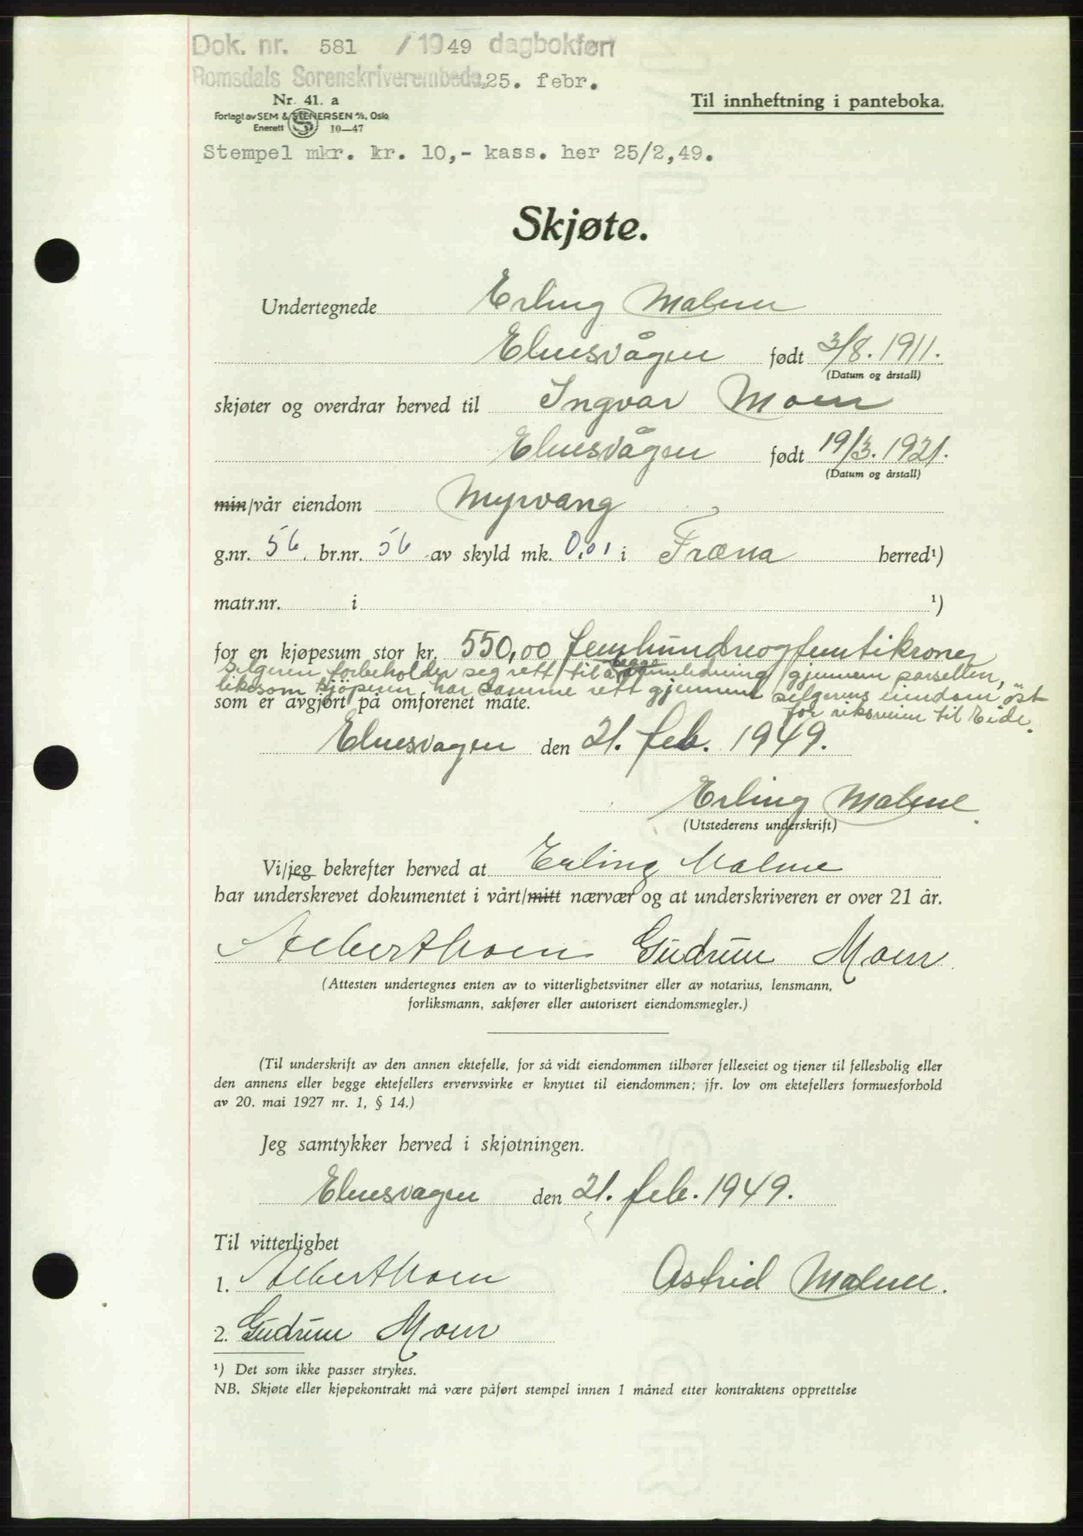 Dok. nr. 581 / 1949 dagbokført
Romsdals Sorenskriverembede 25. febr.
Nr. 41. a
Til innheftning i panteboka.
Forlagt av SEM & STENERSEN A/S, Oslo
Enerett 10—47
Stempel mkr. kr. 10,- kass. her 25/2,49.
Skjøte.
Undertegnede Erling Malme
Elnesvågen født 3/8. 1911.
(Datum og årstall)
skjøter og overdrar herved til Ingvar Moen
Elnesvågen født 19/3. 1921.
(Datum og årstall)
min/vår eiendom Myrvang
g.nr. 56 br.nr. 56 av skyld mk. 0,01 i Fræna herred¹)
matr.nr. i ¹)
for en kjøpesum stor kr. 550,00 femhundreogfemtikroner
Selgeren forbeholder seg rett til å legge vannledning gjennem parsellen,
likesom kjöperen har samme rett gjennem selgerens eiendom öst
som er avgjort på omforenet måte.
for riksveien til Eide.
Elnesvagen den 21. feb. 1949.
Erling Malme
(Utstederens underskrift)
Vi/jeg bekrefter herved at Erling Malme
har underskrevet dokumentet i vårt/mitt nærvær og at underskriveren er over 21 år.
Albert Moen Gudrun Moen
(Attesten undertegnes enten av to vitterlighetsvitner eller av notarius, lensmann,
forliksmann, sakfører eller autorisert eiendomsmegler.)
(Til underskrift av den annen ektefelle, for så vidt eiendommen tilhører felleseiet og tjener til fellesbolig eller
den annens eller begge ektefellers ervervsvirke er knyttet til eiendommen; jfr. lov om ektefellers formuesforhold
av 20. mai 1927 nr. 1, § 14.)
Jeg samtykker herved i skjøtningen.
Elnesvagen den 21. feb. 1949.
Til vitterlighet
1. Albert Moen Astrid Malme.
2. Gudrun Moen
¹) Det som ikke passer strykes.
NB. Skjøte eller kjøpekontrakt må være påført stempel innen 1 måned etter kontraktens opprettelse